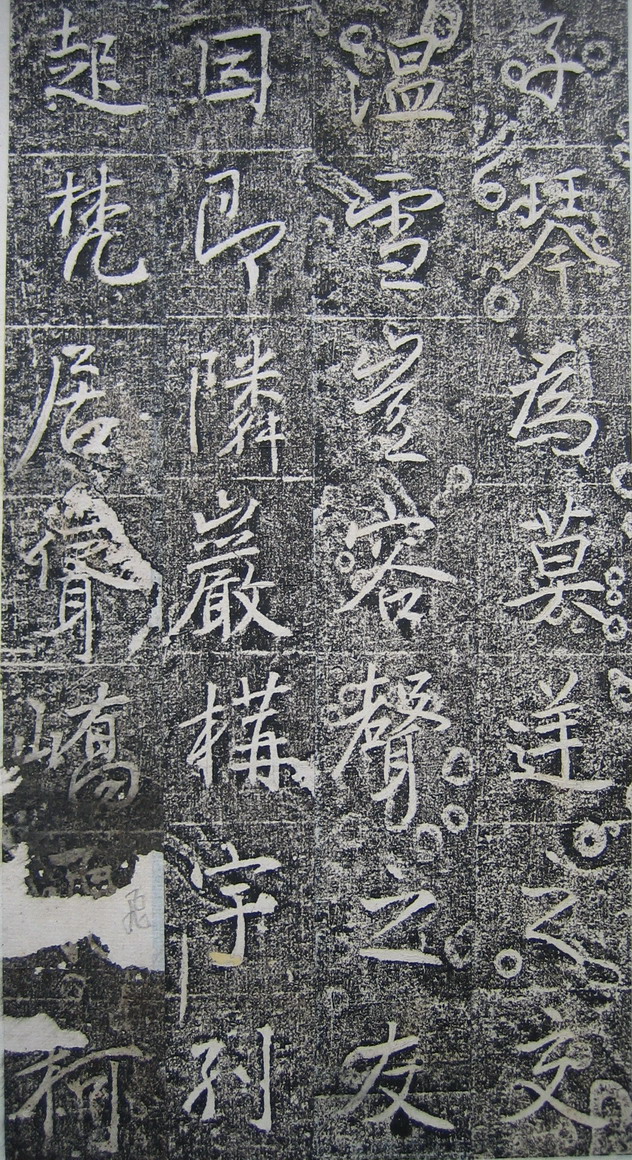 子琴為莫逆之交
温雪豈容聲之友
因即隣巖構宇列
起梵居聳嶠柯